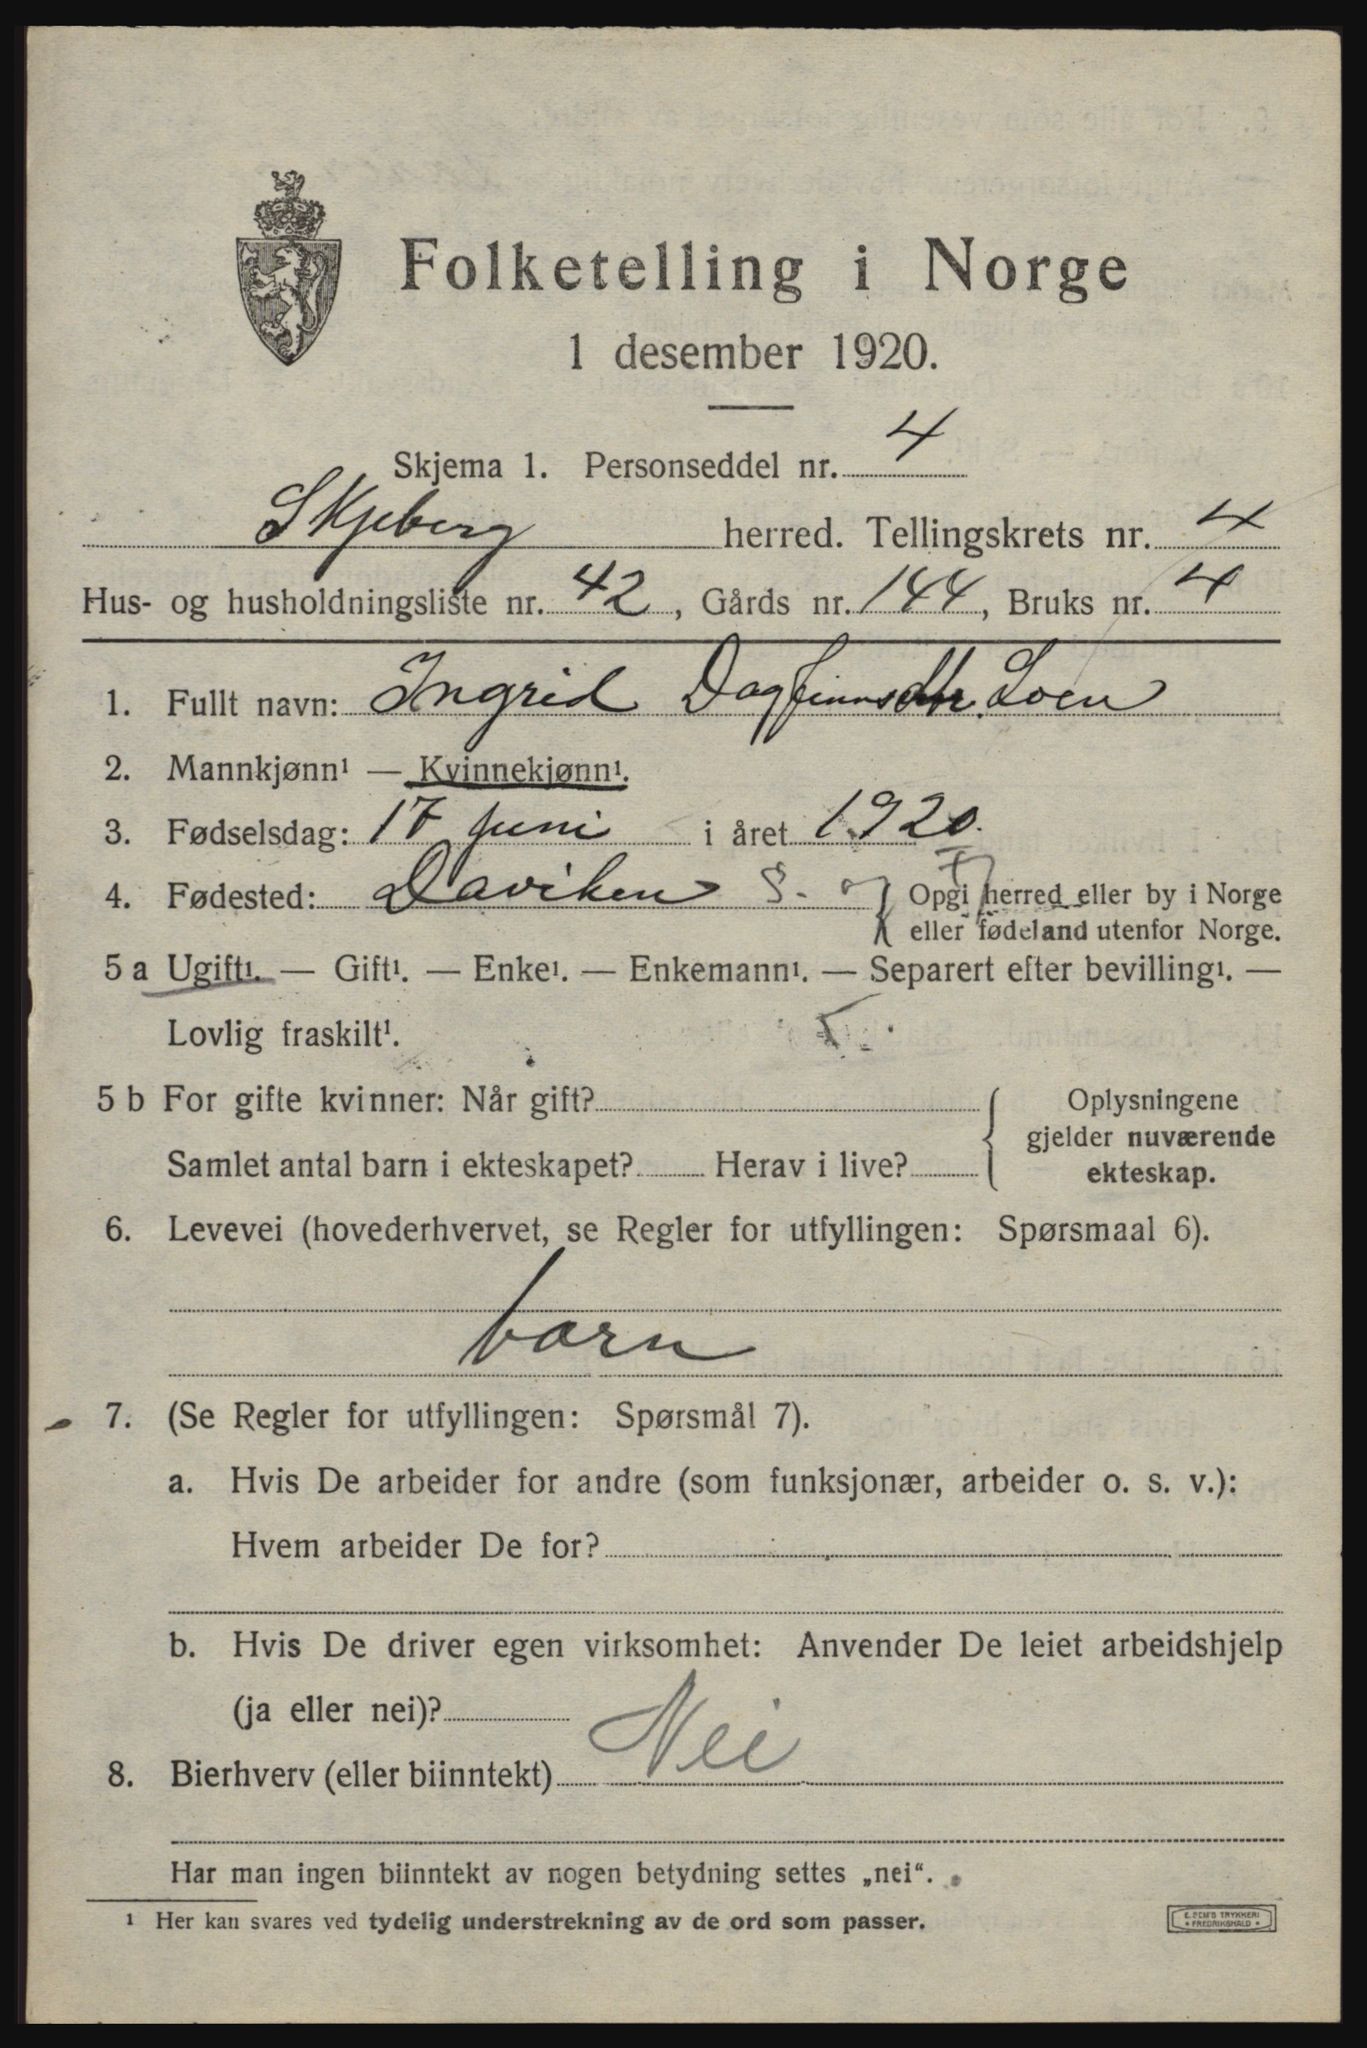 Folketelling i Norge
1 desember 1920.
Skjema 1. Personseddel nr. 4
Skjeberg herred. Tellingskrets nr. 4
Hus- og husholdningsliste nr. 42, Gårds nr. 144, Bruks nr. 4
1. Fullt navn: Ingrid Dagfinnsdtr. Loen
2. Mannkjønn¹ — Kvinnekjønn¹.
3. Fødselsdag: 17 juni i året 1920.
4. Fødested: Daviken S. og Fj Opgi herred eller by i Norge
eller fødeland utenfor Norge.
5 a Ugift¹. — Gift¹. — Enke¹. — Enkemann¹. — Separert efter bevilling¹. —
Lovlig fraskilt¹.
5 b For gifte kvinner: Når gift? Oplysningene
gjelder nuværende
Samlet antal barn i ekteskapet? Herav i live? ekteskap.
6. Levevei (hovederhvervet, se Regler for utfyllingen: Spørsmaal 6).
barn
7. (Se Regler for utfyllingen: Spørsmål 7).
a. Hvis De arbeider for andre (som funksjonær, arbeider o. s. v.):
Hvem arbeider De for?
b. Hvis De driver egen virksomhet: Anvender De leiet arbeidshjelp
(ja eller nei)?
8. Bierhverv (eller biinntekt) Nei
Har man ingen biinntekt av nogen betydning settes „nei“.
¹ Her kan svares ved tydelig understrekning av de ord som passer.
E. SEM'S TRYKKERI
FREDRIKSHALD